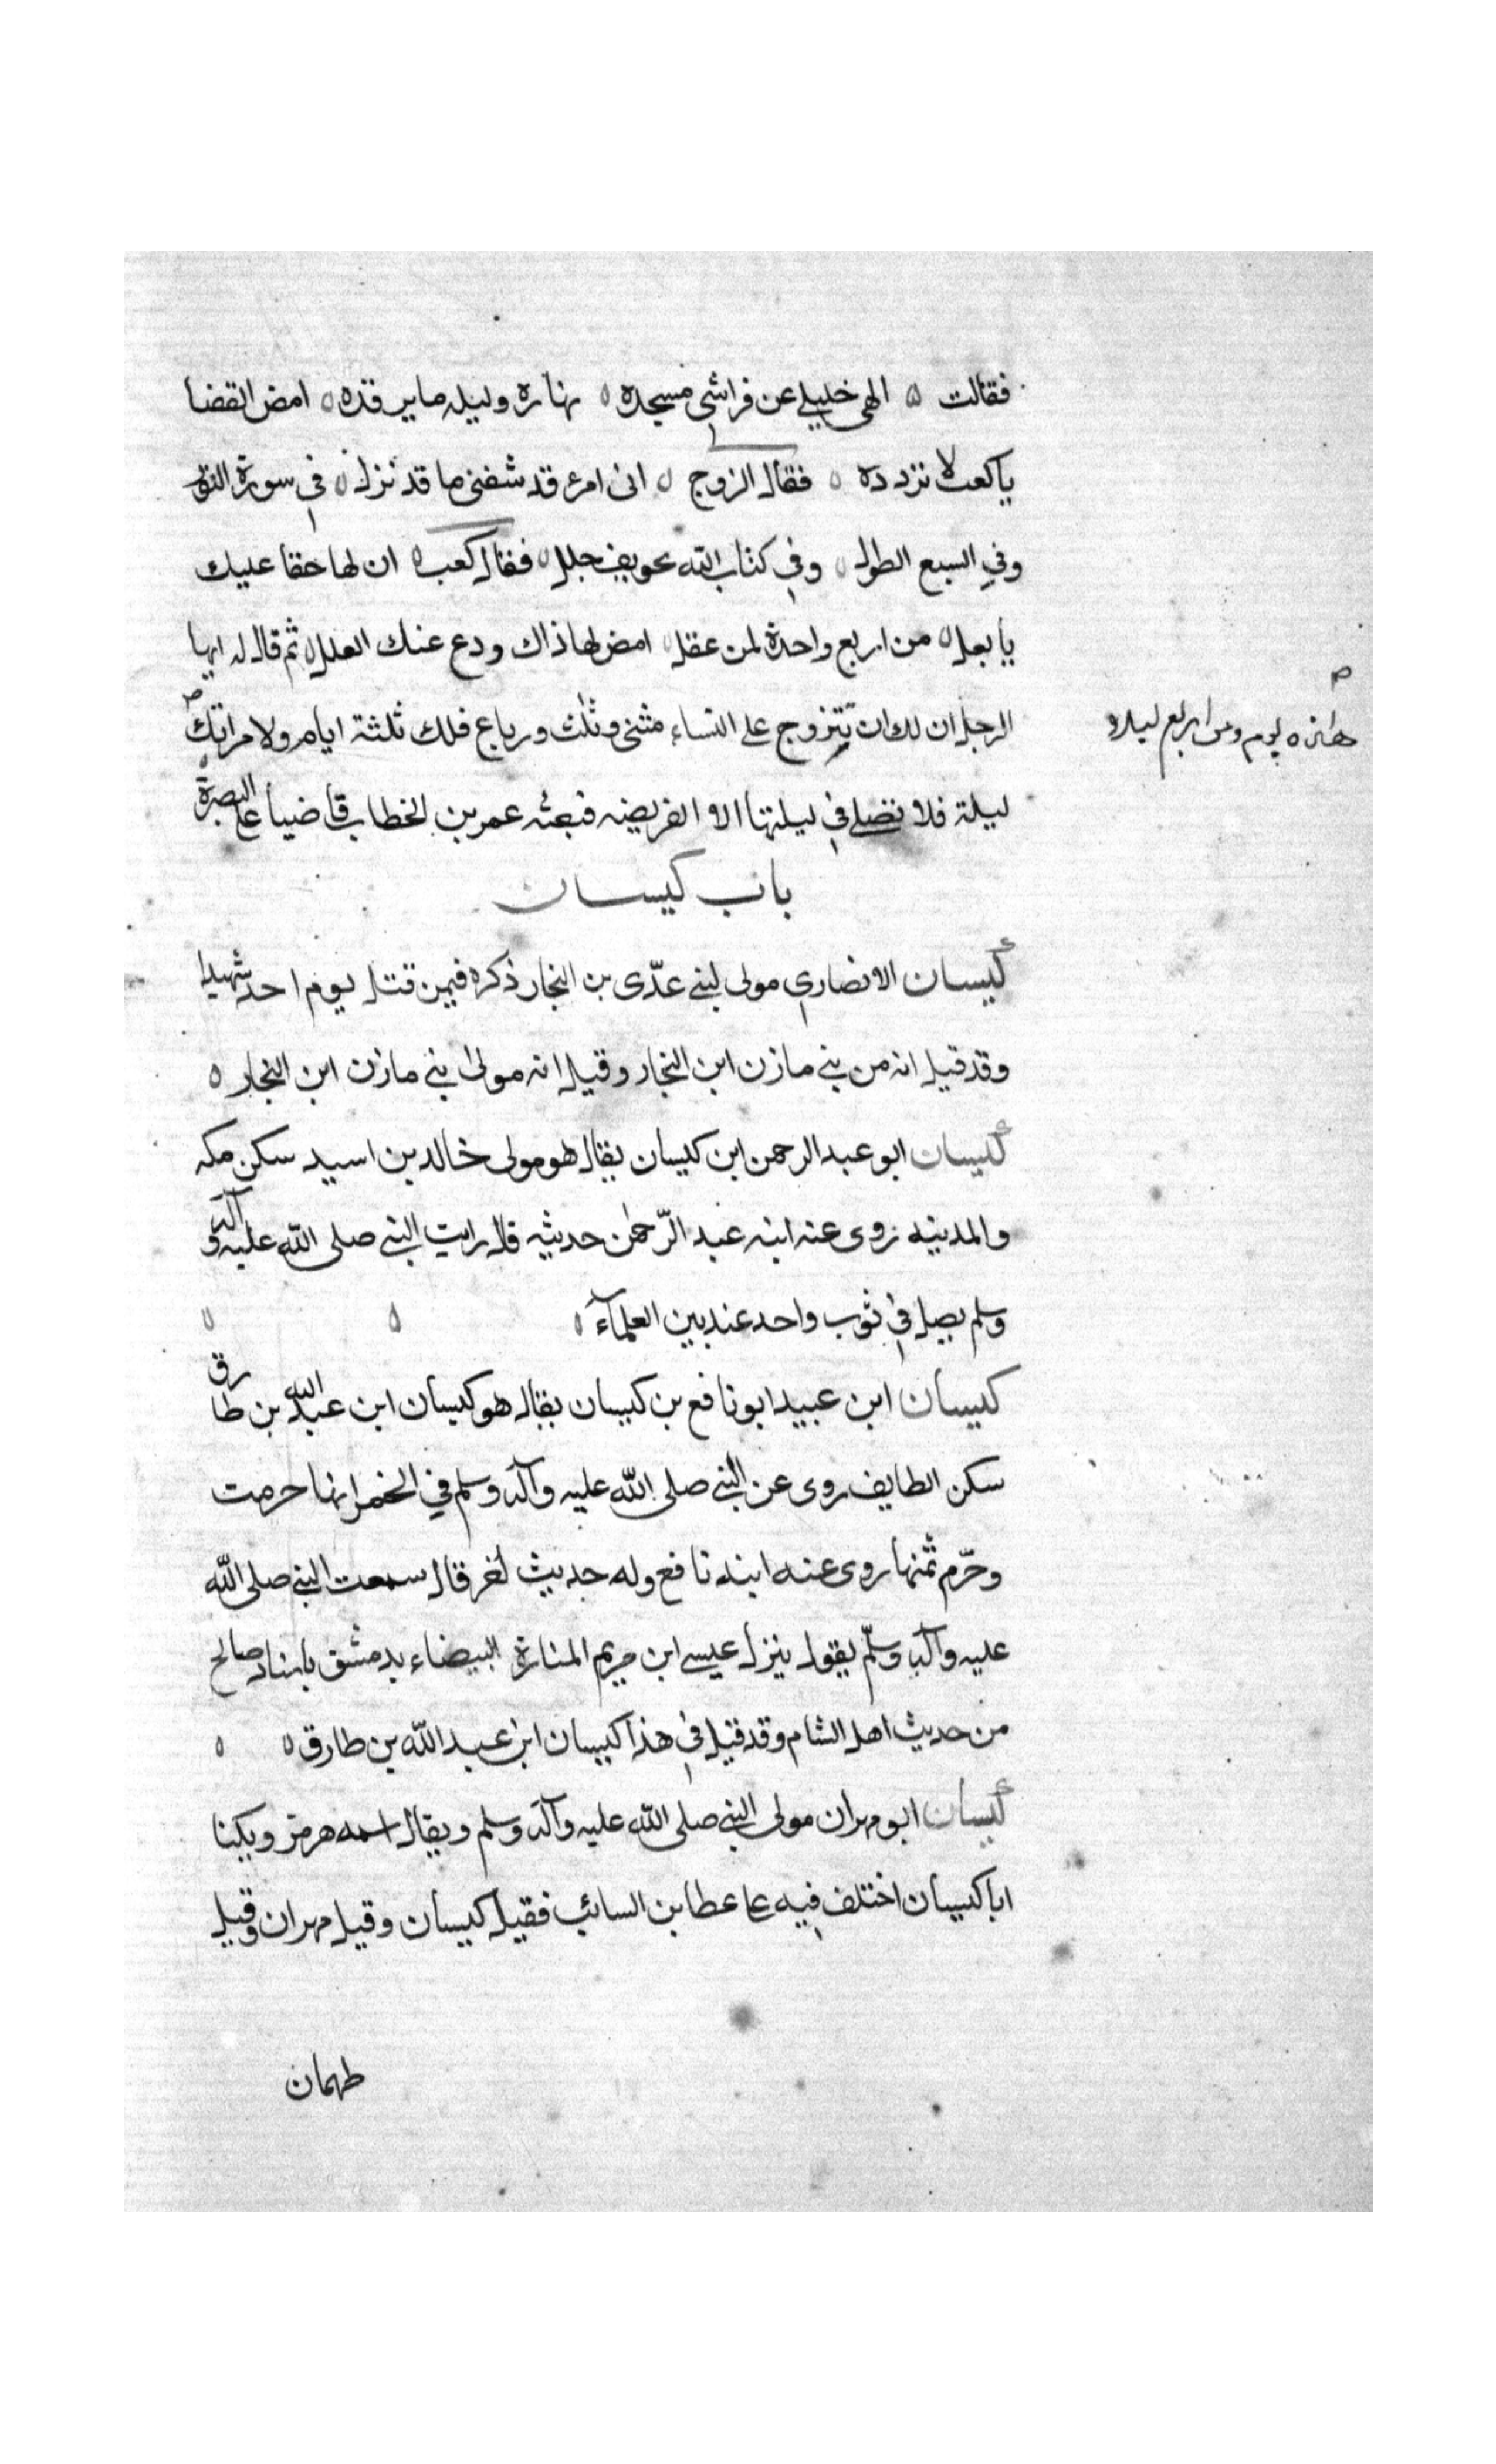 فقالت ۞ الهى خليلي عن فراشى مسجده ه نهاره وليله ما يرقده ه امض القضا
يا كعب لا تردده ه فقال الزوج ه انى امرء قد شفنى ما قد نزل ه فى سورة النور
وفي السبع الطول ه وفي كتاب الله تخويف جلل ه فقال كعب ه ان لها حقا عليك
يا بعل ه من اربع واحدة لمن عقل ه امض لها ذاك ودع عنك العلل ه ثم قال له ايها
الرجل ان لك ان تتزوج على النساء مثنى وثلث ورباع فلك ثلثة ايام ولامراتك
يوم ومن اربع ليلة
ليلة فلا تصلي في ليلتها الا الفريضه فبعثه عمر بن الخطاب قاضيا على البصرة
باب كيسان
كيسان الانصارى مولى لبني عدّى بن النجار ذكره فيمن قتل يوم احد شهيدا
وقد قيل انه من بني مازن ابن النجار وقيل انه مولى بني مازن ابن النجار ه
كيسان ابو عبد الرحمن ابن كيسان يقال هو مولى خالد بن اسيد سكن مكه
والمدينه روى عنه ابنه عبد الرّحمن حديثه قال رايت النبي صلى الله عليه وآله
وسلم يصل في ثوب واحد عند بين العلمآء ه ه ه
كيسان ابن عبيد ابو نافع بن كيسان يقال هو كيسان ابن عبد الله بن طارق
سكن الطايف روى عن النبي صلى الله عليه وآله وسلم في الخمر انها حرمت
وحرّم ثمنها روى عنه ابنه نافع وله حديث اخر قال سمعت النبي صلى الله
عليه وآله وسلّم يقول ينزل عيسى ابن مريم المنارة البيضاء بدمشق باسناد صالح
من حديث اهل الشام وقد قيل في هذا كيسان ابن عبد الله بن طارق ه ه
كيسان ابو مهران مولى النبي صلى الله عليه وآله وسلم ويقال اسمه هرمز ويكنا
ابا كيسان اختلف فيه على عطا بن السائب فقيل كيسان وقيل مهران وقيل
طهمان